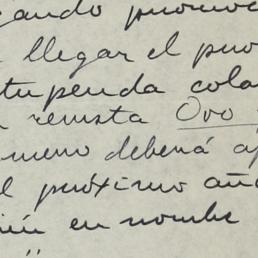 gando
llegar el pro
tupenda cola
revista Ovo
meno deberá a
el próximo añ
ién en nombre